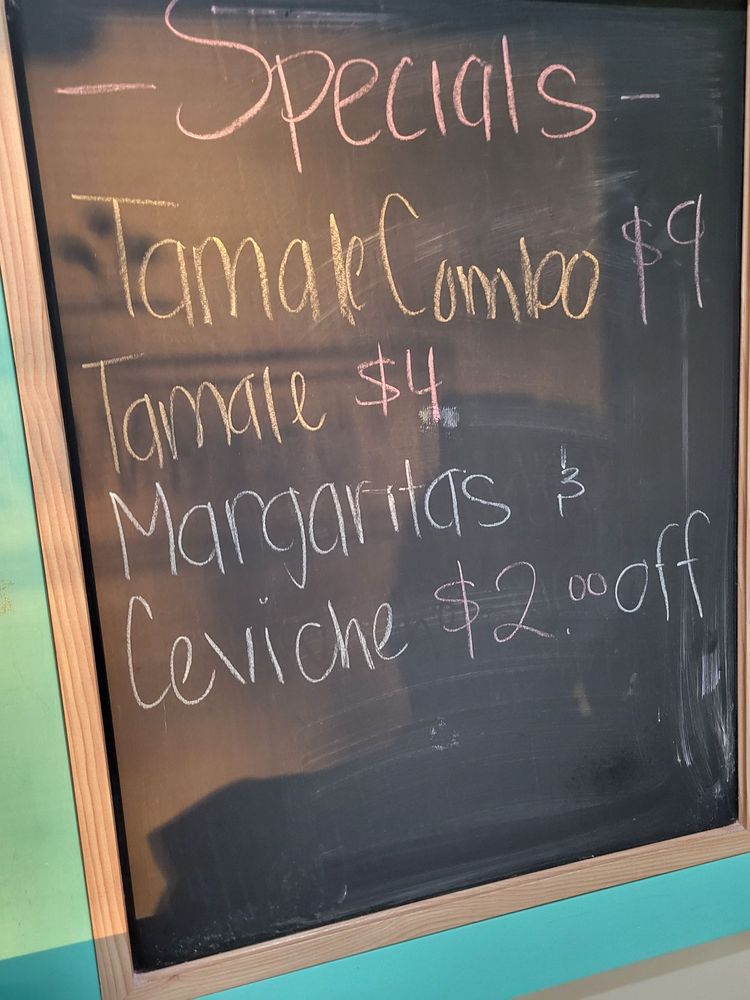 - Specials -
Tamale Combo $9
Tamale $4
Margaritas &
Ceviche $2.00 off